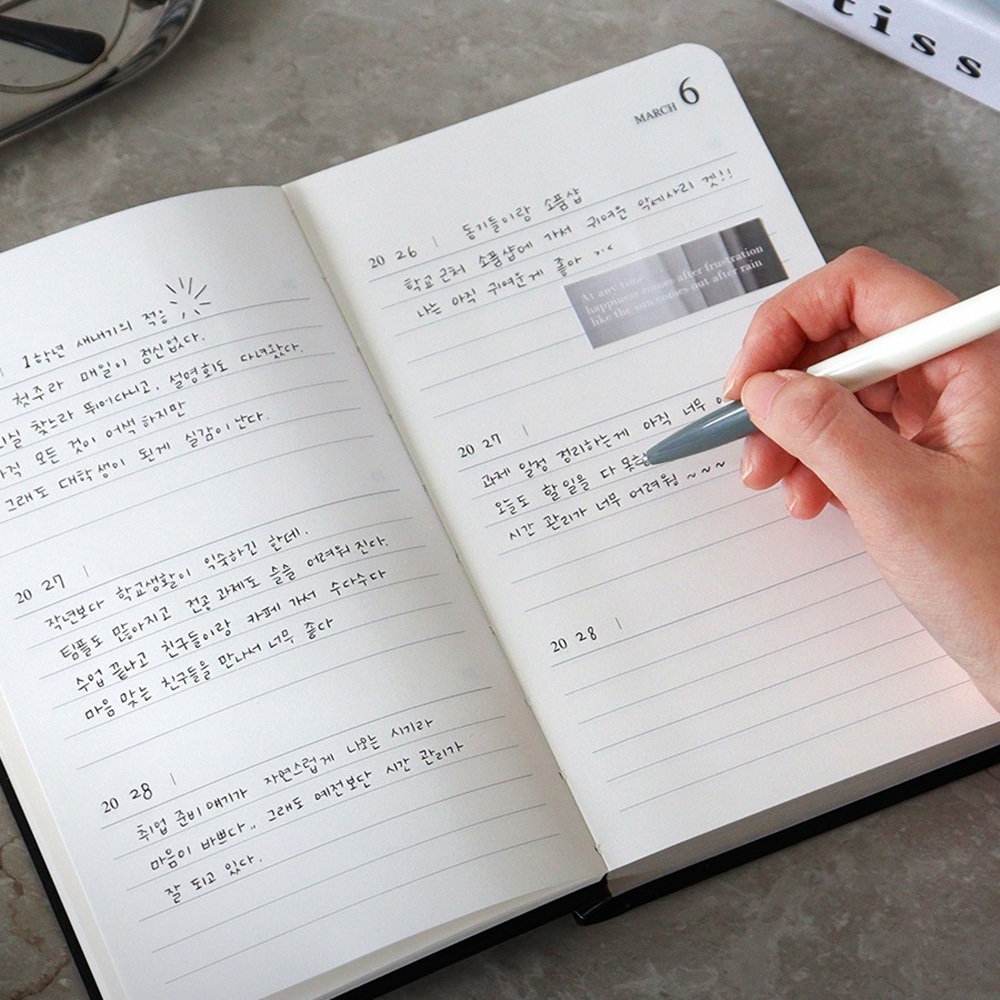 1학년 새내기의 적응
첫주라 매일이 정신없다.
찾느라 뛰어다니고, 설명회도 다녀왔다.
모든 것이 어색하지만
그래도 대학생이 된게 실감이 난다.
20 27 |
작년보다 학교생활이 익숙하긴 한데,
팀플도 많아지고 전공 과제도 슬슬 어려워진다.
수업 끝나고 친구들이랑 카페 가서 수다수다
마음 맞는 친구들을 만나서 너무 좋다
20 28 |
취업 준비 얘기가 자연스럽게 나오는 시기라
마음이 바쁘다.. 그래도 예전보단 시간 관리가
잘 되고 있다.
MARCH 6
20 26 | 동기들이랑 소품샵
학교 근처 소품샵에 가서 귀여운 악세사리 겟!!
나는 아직 귀여운게 좋아
At any time
happiness comes after frustration
like the sun comes out after rain
20 27 |
과제 일정 정리하는게 아직 너무
오늘도 할 일을 다 못
시간 관리가 너무 어려웡 ~~~
20 28 |
tiss